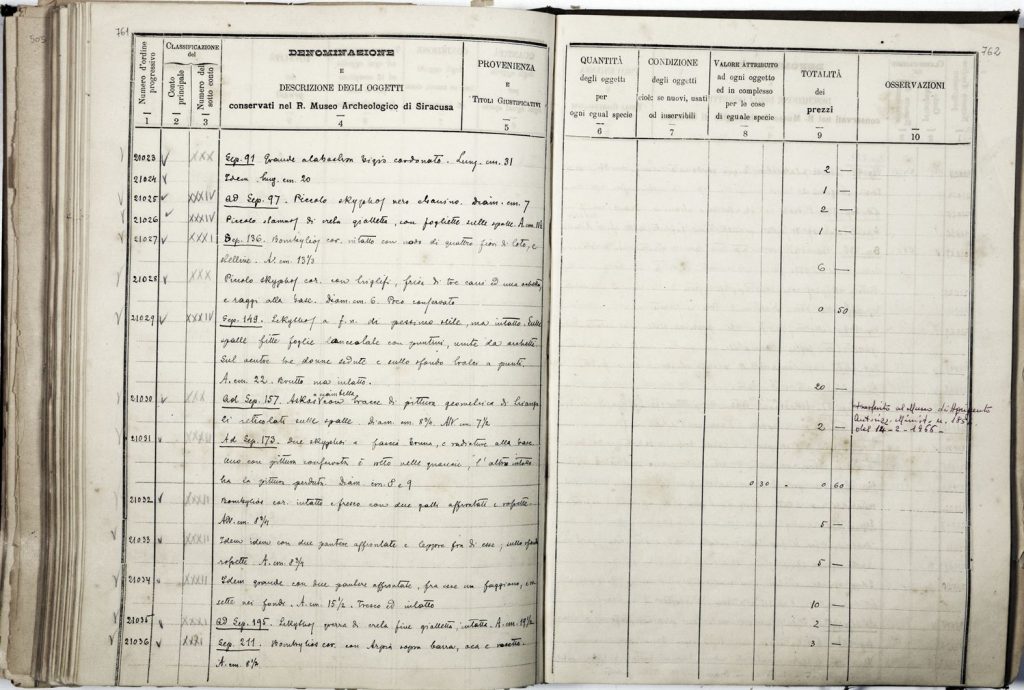 761
CLASSIFICAZIONE
del
Numero d'ordine progressivo
Conto principale
Numero del sotto conto
DENOMINAZIONE
E
DESCRIZIONE DEGLI OGGETTI
conservati nel R. Museo Archeologico di Siracusa
PROVENIENZA
E
TITOLI GIUSTIFICATIVI
1 2 3 4 5
21023 XXX Sep. 91 Grande alabastron cordonato. Lung. cm. 31
21024 Idem lung. cm. 20
21025 XXXIV ad Sep. 97. Piccolo skyphos nero. Diam. cm. 7
21026 XXXIV Piccolo stamnos di creta gialletta, con fogliette sulle spalle. A. cm.
21027 XXXI Sep. 136. Bombylios cor. intatto con nodo di quattro fiori di loto, e
stelline. A. cm. 13½
21028 XXX Piccolo skyphos cor. con fregio di tre cani ed una
e raggi alla base. Diam. cm. 6. Poco conservato
21029 XXXIV Sep. 149. Lekythos a f. n. di pessimo stile, ma intatto. Sulle
spalle fitte foglie lanceolate con puntini, unite da archetti.
Sul ventre tre donne sedute e sullo sfondo tralci a punti.
A. cm. 22. Brutto ma intatto.
21030 XXX ad Sep. 157. Askos a ciambella con tracce di pittura geometrica di triango
li reticolati sulle spalle. Diam. cm. 8¾. Alt. cm. 7½
21031 Ad Sep. 173. due skyphoi a fascia bruna, e radiature alla base
uno con pittura conservata è rotto, l'altro intatto
ha la pittura perduta. Diam. cm. 8 e 9
21032 XXXII Bombylios cor. intatto e fresco con due galli affrontati e rosette.
Alt. cm. 8¾
21033 XXXII Idem idem con due pantere affrontate e leppre fra di esse; sullo sfondo
rosette A. cm. 8¾
21034 XXXII Idem grande con due pantere affrontate, fra esse un faggiano, e ro
sette nei fondi. A. cm. 15½. Fresco ed intatto
21035 XXXI ad Sep. 195. Lekythos grezza di creta fine gialletta, intatta. A. cm. 19½
21036 XXXI Sep. 211. Bombylios cor. con Arpia sopra barra, oca e rosette.
A. cm. 8½
762
QUANTITÀ
degli oggetti
per
ogni egual specie
CONDIZIONE
degli oggetti
cioè: se nuovi, usati
od inservibili
VALORE ATTRIBUITO
ad ogni oggetto
ed in complesso
per le cose
di eguale specie
TOTALITÀ
dei
prezzi
OSSERVAZIONI
6 7 8 9 10
2 —
1 —
2 —
1 —
6 —
0 50
20 —
2 —
trasferito al Museo di Agrigento
Autorizz. Minist. n. 185
del 14-2-1966 -
0 30 0 60
5 —
5 —
10 —
2 —
3 —